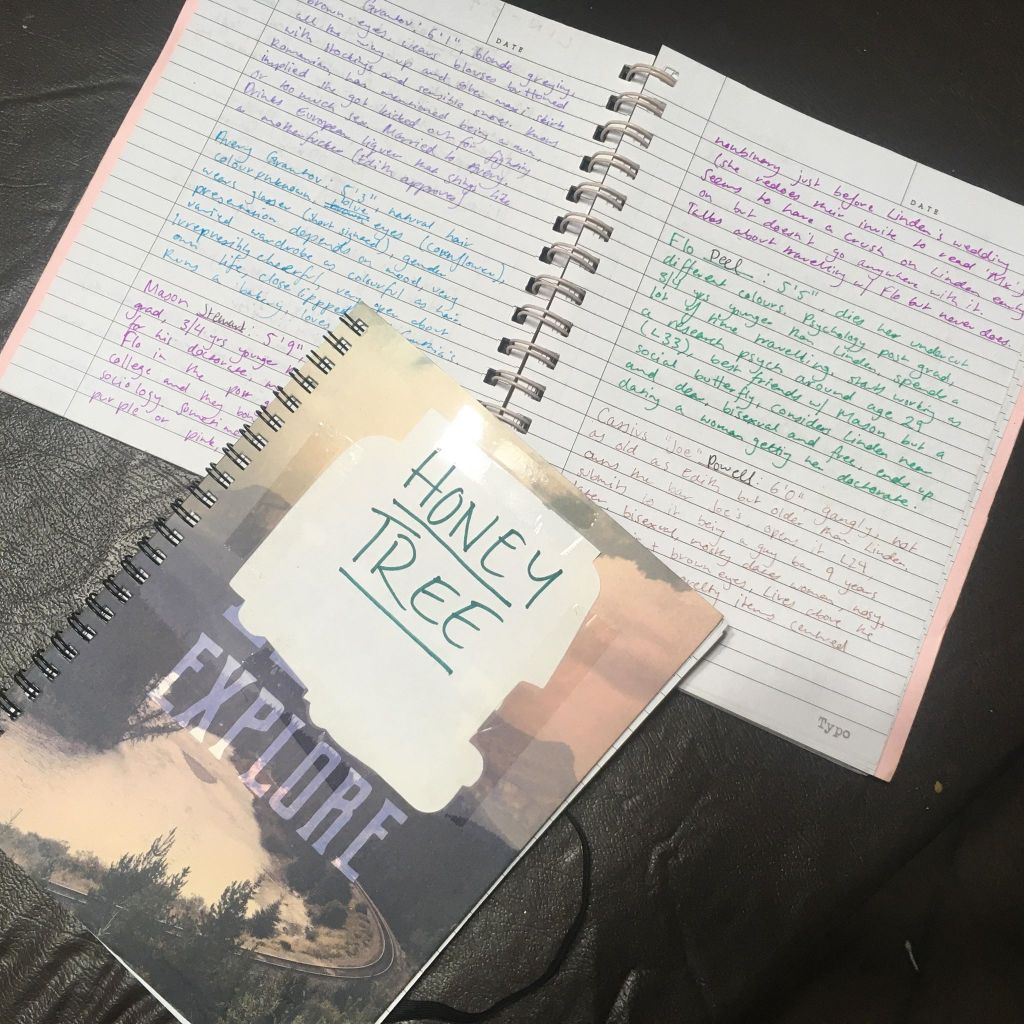 DATE
Grantov: 6'1", blonde greying,
brown eyes, wears blouses buttoned
all the way up and maxi skirts
with stockings and sensible shoes. Knows
Romanian, has mentioned being a nun,
implied she got kicked out for fighting
or too much sex. Married to Avery.
Drinks European liquor that stings like
a motherfucker (Edith approves)
Avery Grantov: 5'3", natural hair
colour unknown, blue eyes (cornflower),
wears glasses (short sighted), gender
presentation depends on mood, very
varied wardrobe as colourful as hair.
Irrepressibly cheerful, very open about
own life, close lipped
Runs a bakery, loves
Mason Stewart: 5'9"
grad, 3/4 yrs younger
for his doctorate
Flo in the
college and they
sociology. Sometimes
purple or pink
DATE
nonbinary just before Linden's wedding
(she redoes their invite to read 'Mx').
Seems to have a crush on Linden early
on but doesn't go anywhere with it.
Talks about travelling w/ Flo but never does.
Flo Peel: 5'5", dies her undercut
different colours. Psychology post grad,
3/4 yrs younger than Linden, spends a
lot of time travelling, starts working as
a research psych around age 29
(L33), best friends w/ Mason but a
social butterfly, considers Linden near
and dear, bisexual and free, ends up
dating a woman getting her doctorate.
Cassius "Joe" Powell: 6'0" gangly, not
as old as Edith but older than Linden
owns the bar Joe's, open it L24,
submits to it being a gay bar 9 years
later, bisexual, mostly dates women, nosy,
brown eyes, lives above the
items centred
Typo
HONEY
TREE
EXPLORE